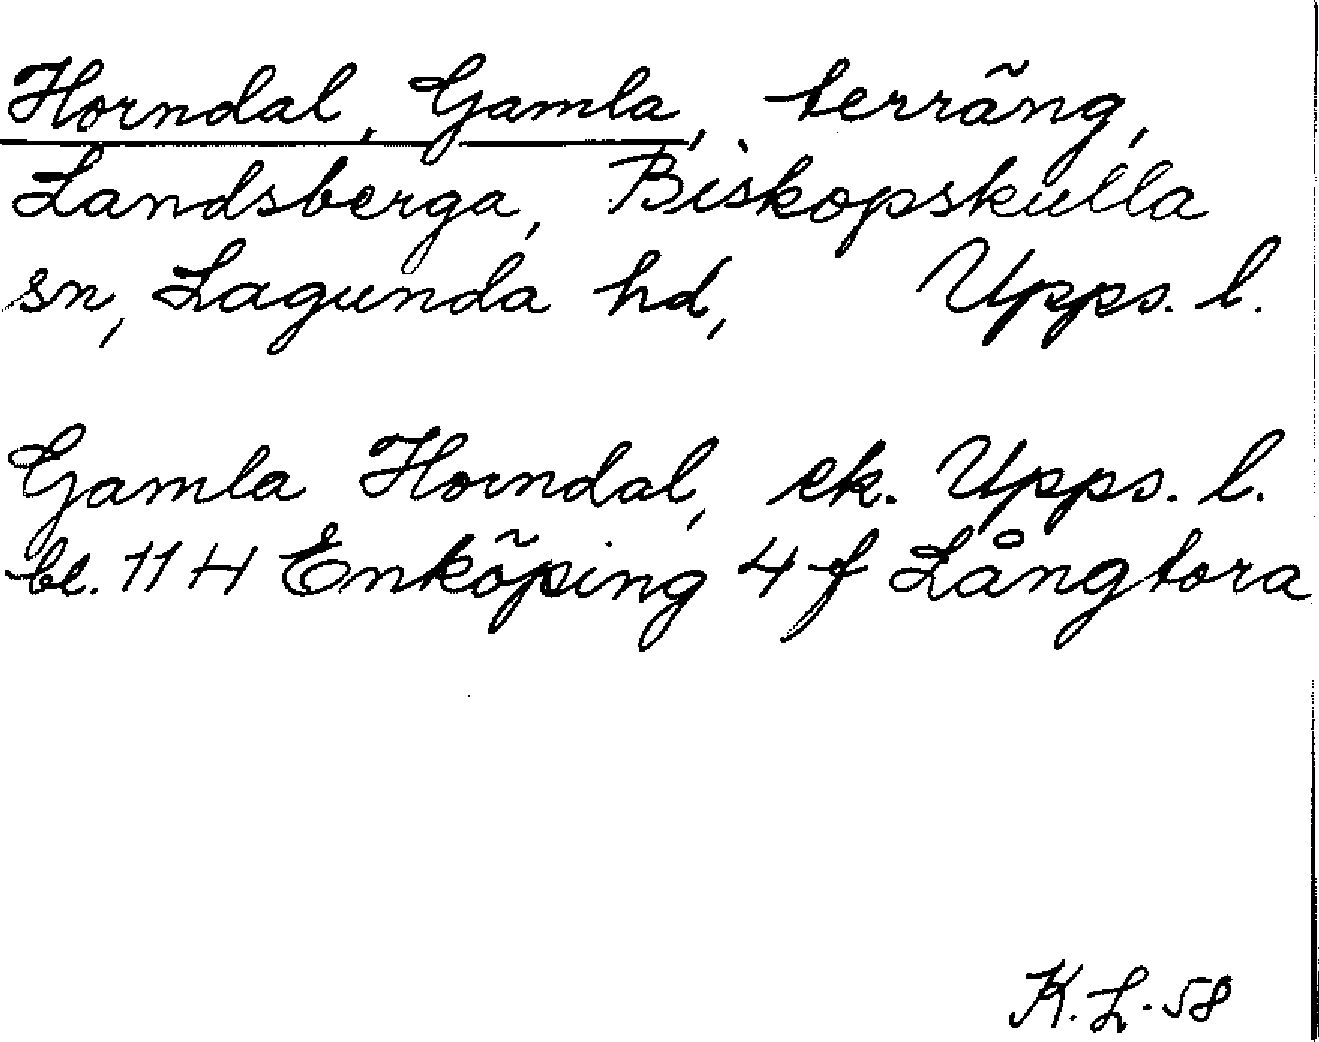 Horndal, Gamla, terräng,
Landsberga, Biskopskulla
sn, Lagunda hd, Upps. l.
Gamla Horndal, ek. Upps. l.
bl. 11 H Enköping 4 f Långtora
K. L. 58